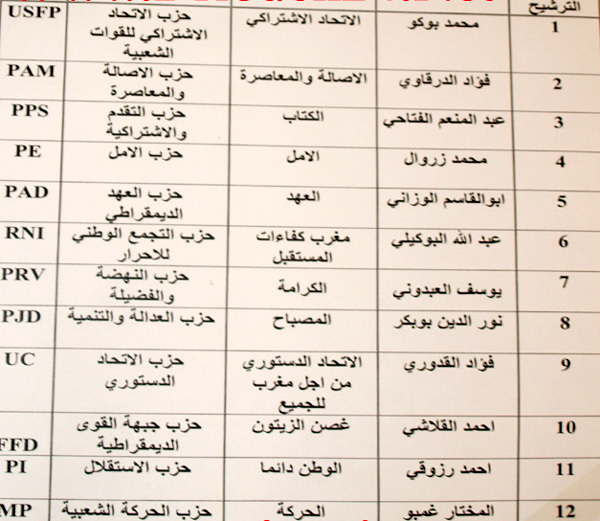 الترشيح
1 محمد بوكو الاتحاد الاشتراكي حزب الاتحاد الاشتراكي للقوات الشعبية USFP
2 فؤاد الدرقاوي الاصالة والمعاصرة حزب الاصالة والمعاصرة PAM
3 عبد المنعم الفتاحي الكتاب حزب التقدم والاشتراكية PPS
4 محمد زروال الامل حزب الامل PE
5 ابوالقاسم الوزاني العهد حزب العهد الديمقراطي PAD
6 عبد الله البوكيلي مغرب كفاءات المستقبل حزب التجمع الوطني للاحرار RNI
7 يوسف العبدوني الكرامة حزب النهضة والفضيلة PRV
8 نور الدين بوبكر المصباح حزب العدالة والتنمية PJD
9 فؤاد القدوري الاتحاد الدستوري من اجل مغرب للجميع حزب الاتحاد الدستوري UC
10 احمد القلاشي غصن الزيتون حزب جبهة القوى الديمقراطية FFD
11 احمد رزوقي الوطن دائما حزب الاستقلال PI
12 المختار غمبو الحركة حزب الحركة الشعبية MP